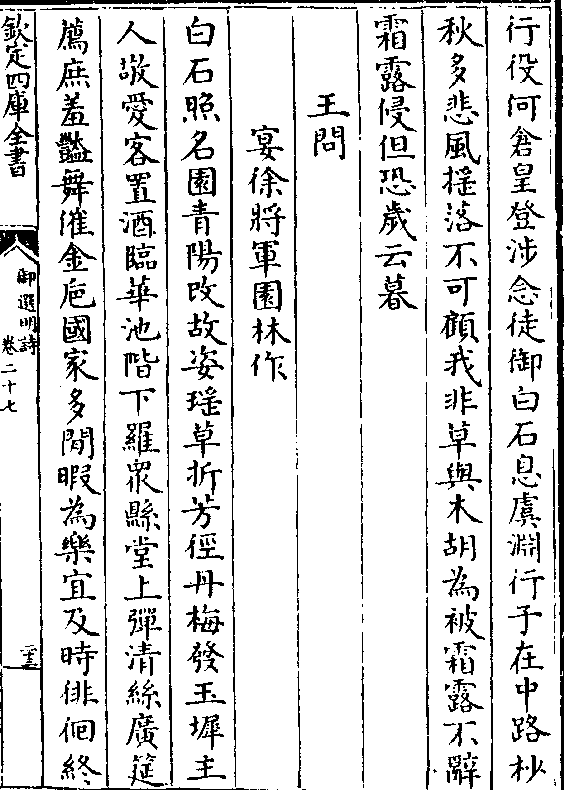 行役何倉皇登涉念徒御白石息虞淵行子在中路杪
秋多悲風揺落不可顧我非草與木胡為被霜露不辭
霜露侵但恐歲云暮
王問
宴徐將軍園林作
白石照名園青陽改故姿瑶草折芳徑丹梅發玉墀主
人敬愛客置酒臨華池階下羅衆縣堂上彈清絲廣筵
薦庶羞豔舞催金巵國家多閒暇為樂宜及時徘徊終
欽定四庫全書
御選明詩
卷二十七